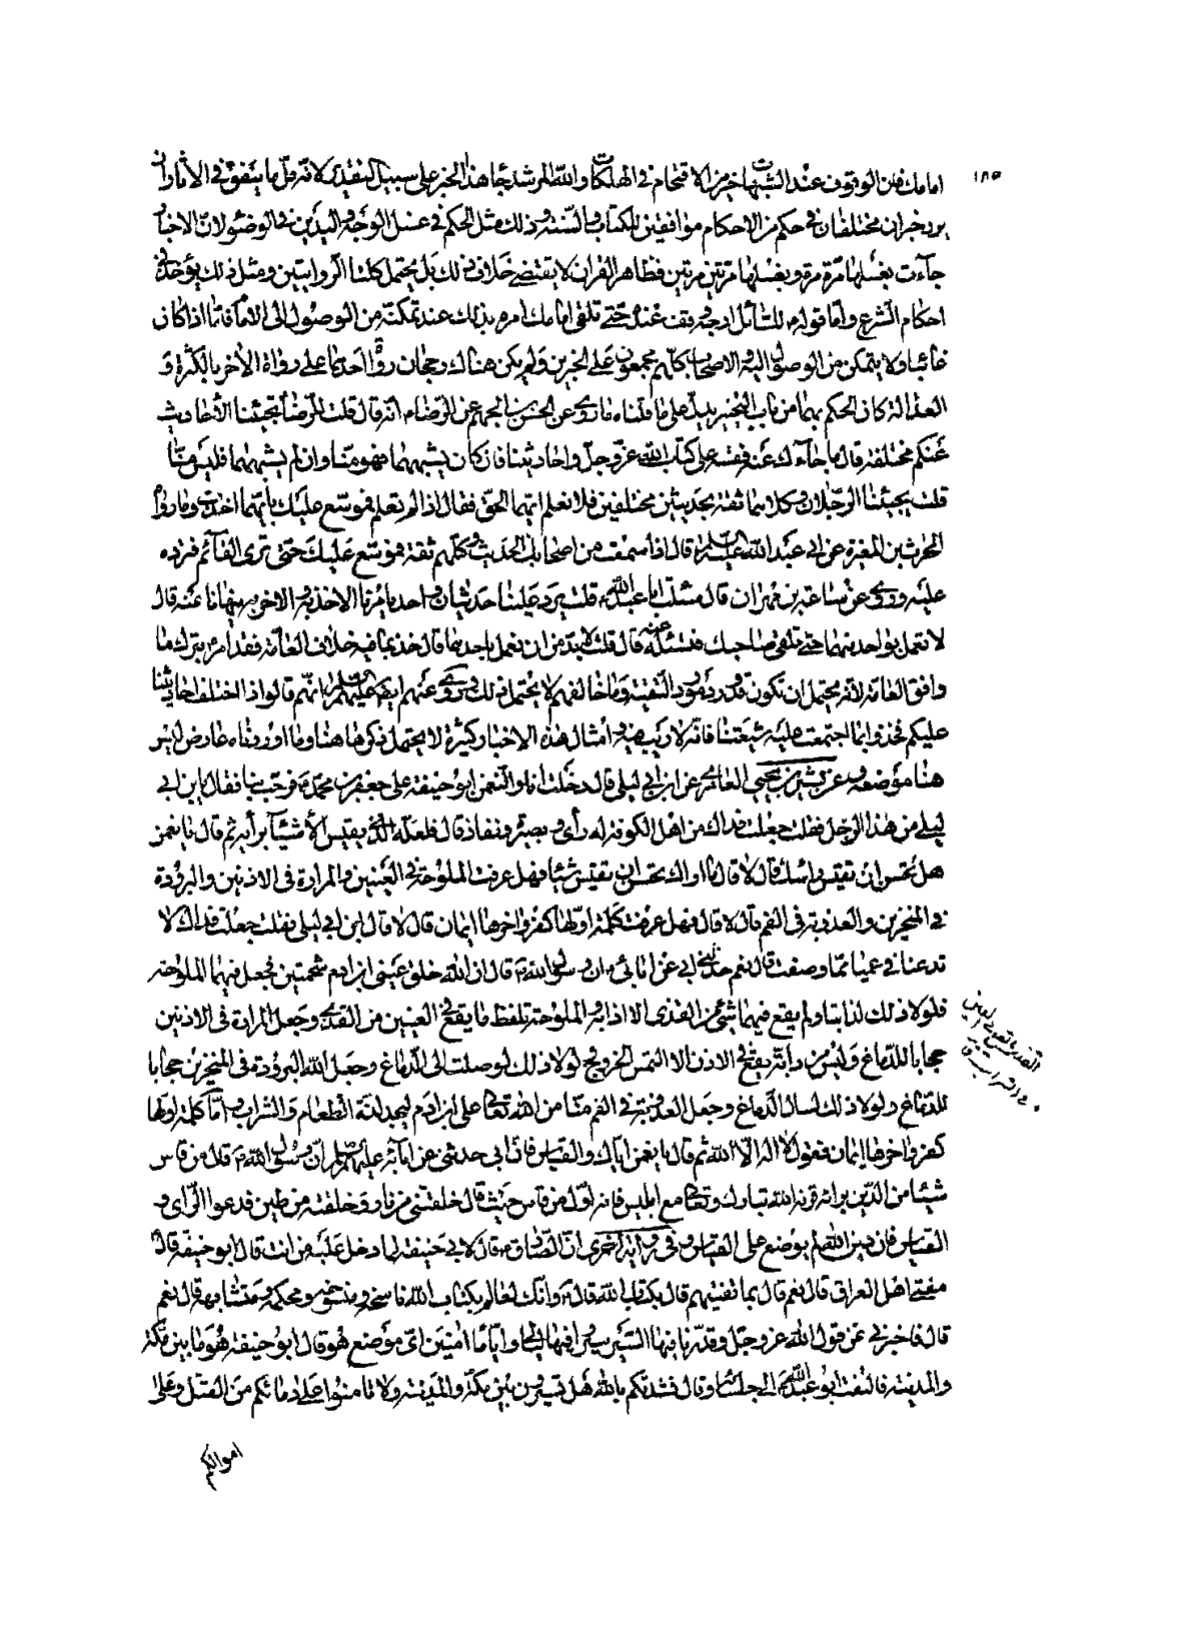 ١٨٥
امامك فان الوقوف عند الشبهات خير من الاقتحام في الهلكات والله المرشد جاء هذا الخبر على سبيل التقدير لانه قل ما يتفق في الاثار ان
يرد خبران مختلفان في حكم من الاحكام موافقين للكتاب والسنة وذلك مثل الحكم في غسل الوجه واليدين في الوضوء لان الاخبار
جاءت بغسلها مرة مرة وبغسلها مرتين مرتين فظاهر القران لا يقتضي خلاف ذلك بل يحتمل كلتا الروايتين ومثل ذلك يؤخذ في
احكام الشرع واما قوله للسائل ارجه وقف عنده حتى تلقى امامك امره بذلك عند تمكنه من الوصول الى الامام فاما اذا كان
غائبا ولا يتمكن من الوصول اليه والاصحاب كلهم مجمعون على الخبرين ولم يكن هناك رجحان رواة احدهما على رواة الاخر بالكثرة و
العدالة كان الحكم بهما من باب التخيير يدل على ما قلناه ما روي عن الحسن بن الجهم عن الرضا ء انه قال قلت للرضا تجيئنا الأحاديث
عنكم مختلفة قال ما جاءك عنه فقسه على كتاب الله عز وجل واحاديثنا فان كان يشبههما فهو منا وان لم يشبههما فليس منا
قلت يجيئنا الرجلان وكلاهما ثقة بحديثين مختلفين فلا نعلم ايهما الحق فقال اذا لم تعلم فموسع عليك بايهما اخذت وما رواه
الحرث بن المغيرة عن ابي عبد الله عليه السلام قال اذا سمعت من اصحابك الحديث وكلهم ثقة فموسع عليك حتى ترى القائم فترده
عليه وروي عن سماعة بن مهران قال سئلت ابا عبد الله ء قلت يرد علينا حديثان واحد يأمرنا الاخذ به والاخر ينهانا عنه قال
لا تعمل بواحد منهما حتى تلقى صاحبك فتسئله عنه قال قلت لا بد من ان نعمل باحدهما قال خذ بما فيه خلاف العامة فقد امر ء بترك ما
وافق العامة لانه يحتمل ان تكون قد ورد مورد التقية وما خالفهم لا يحتمل ذلك وروي عنهم ايضا عليهم السلام انهم قالوا اذا اختلف احاديثنا
عليكم فخذوا بما اجتمعت عليه شيعتنا فانه لا ريب فيه وامثال هذه الاخبار كثيرة لا يحتمل ذكرها هنا وما اوردناه عارض ليس
هنا موضعه وعن بشير بن يحيى العامري عن ابن ابي ليلى قال دخلت انا والنعمن ابو حنيفة على جعفر بن محمد ء فرحب بنا فقال يا بن ابي
ليلى من هذا الرجل فقلت جعلت فداك من اهل الكوفة له رأي وبصيرة ونفاذ قال فلعله الذي يقيس الأشياء برأيه ثم قال يا نعمن
هل تحسن ان تقيس راسك قال لا قال ما اراك تحسن ان تقيس شيئا فهل عرفت الملوحة في العينين والمرارة في الاذنين والبرودة
في المنخرين والعذوبة في الفم قال لا قال فهل عرفت كلمة اولها كفر واخرها ايمان قال لا قال ابن ابي ليلى فقلت جعلت فداك لا
تدعنا في عمياء مما وصفت قال نعم حدثني ابي عن ابائي ء ان رسول الله ص قال ان الله خلق عيني ابن ادم شحمتين فجعل فيهما الملوحة
فلولا ذلك لذابتا ولم يقع فيهما شيء من القذى الا اذابه والملوحة تلفظ ما يقع في العينين من القذى وجعل المرارة في الاذنين
حجابا للدماغ وليس من دابة يقع في الاذن الا التمس الخروج لولا ذلك لوصلت الى الدماغ وجعل الله البرودة في المنخرين حجابا
للدماغ ولولا ذلك لسال الدماغ وجعل العذوبة في الفم منا من الله تعالى على ابن ادم ليجد لذة الطعام والشراب واما كلمة اولها
كفر واخرها ايمان فقول لا اله الا الله ثم قال يا نعمن اياك والقياس فان ابي حدثني عن ابائه عليهم السلام ان رسول الله ص قال من قاس
شيئا من الدين برايه قرنه الله تبارك وتعالى مع ابليس فانه اول من قاس حيث قال خلقتني من نار وخلقته من طين فدعوا الراي و
القياس فان دين الله لم يوضع على القياس وفي رواية اخرى ان الصادق ء قال لابي حنيفة لما دخل عليه من انت قال ابو حنيفة قال
مفتي اهل العراق قال نعم قال بما تفتيهم قال بكتاب الله قال ء وانك لعالم بكتاب الله ناسخه ومنسوخه ومحكمه ومتشابهه قال نعم
قال فاخبرني عن قول الله عز وجل وقدرنا فيها السير سيروا فيها ليالي واياما امنين اي موضع هو قال ابو حنيفة هو ما بين مكة
والمدينة فالتفت ابو عبد الله ء الى جلسائه وقال نشدتكم بالله هل تسيرون بين مكة والمدينة ولا تامنوا على دمائكم من القتل وعلى
اموالكم